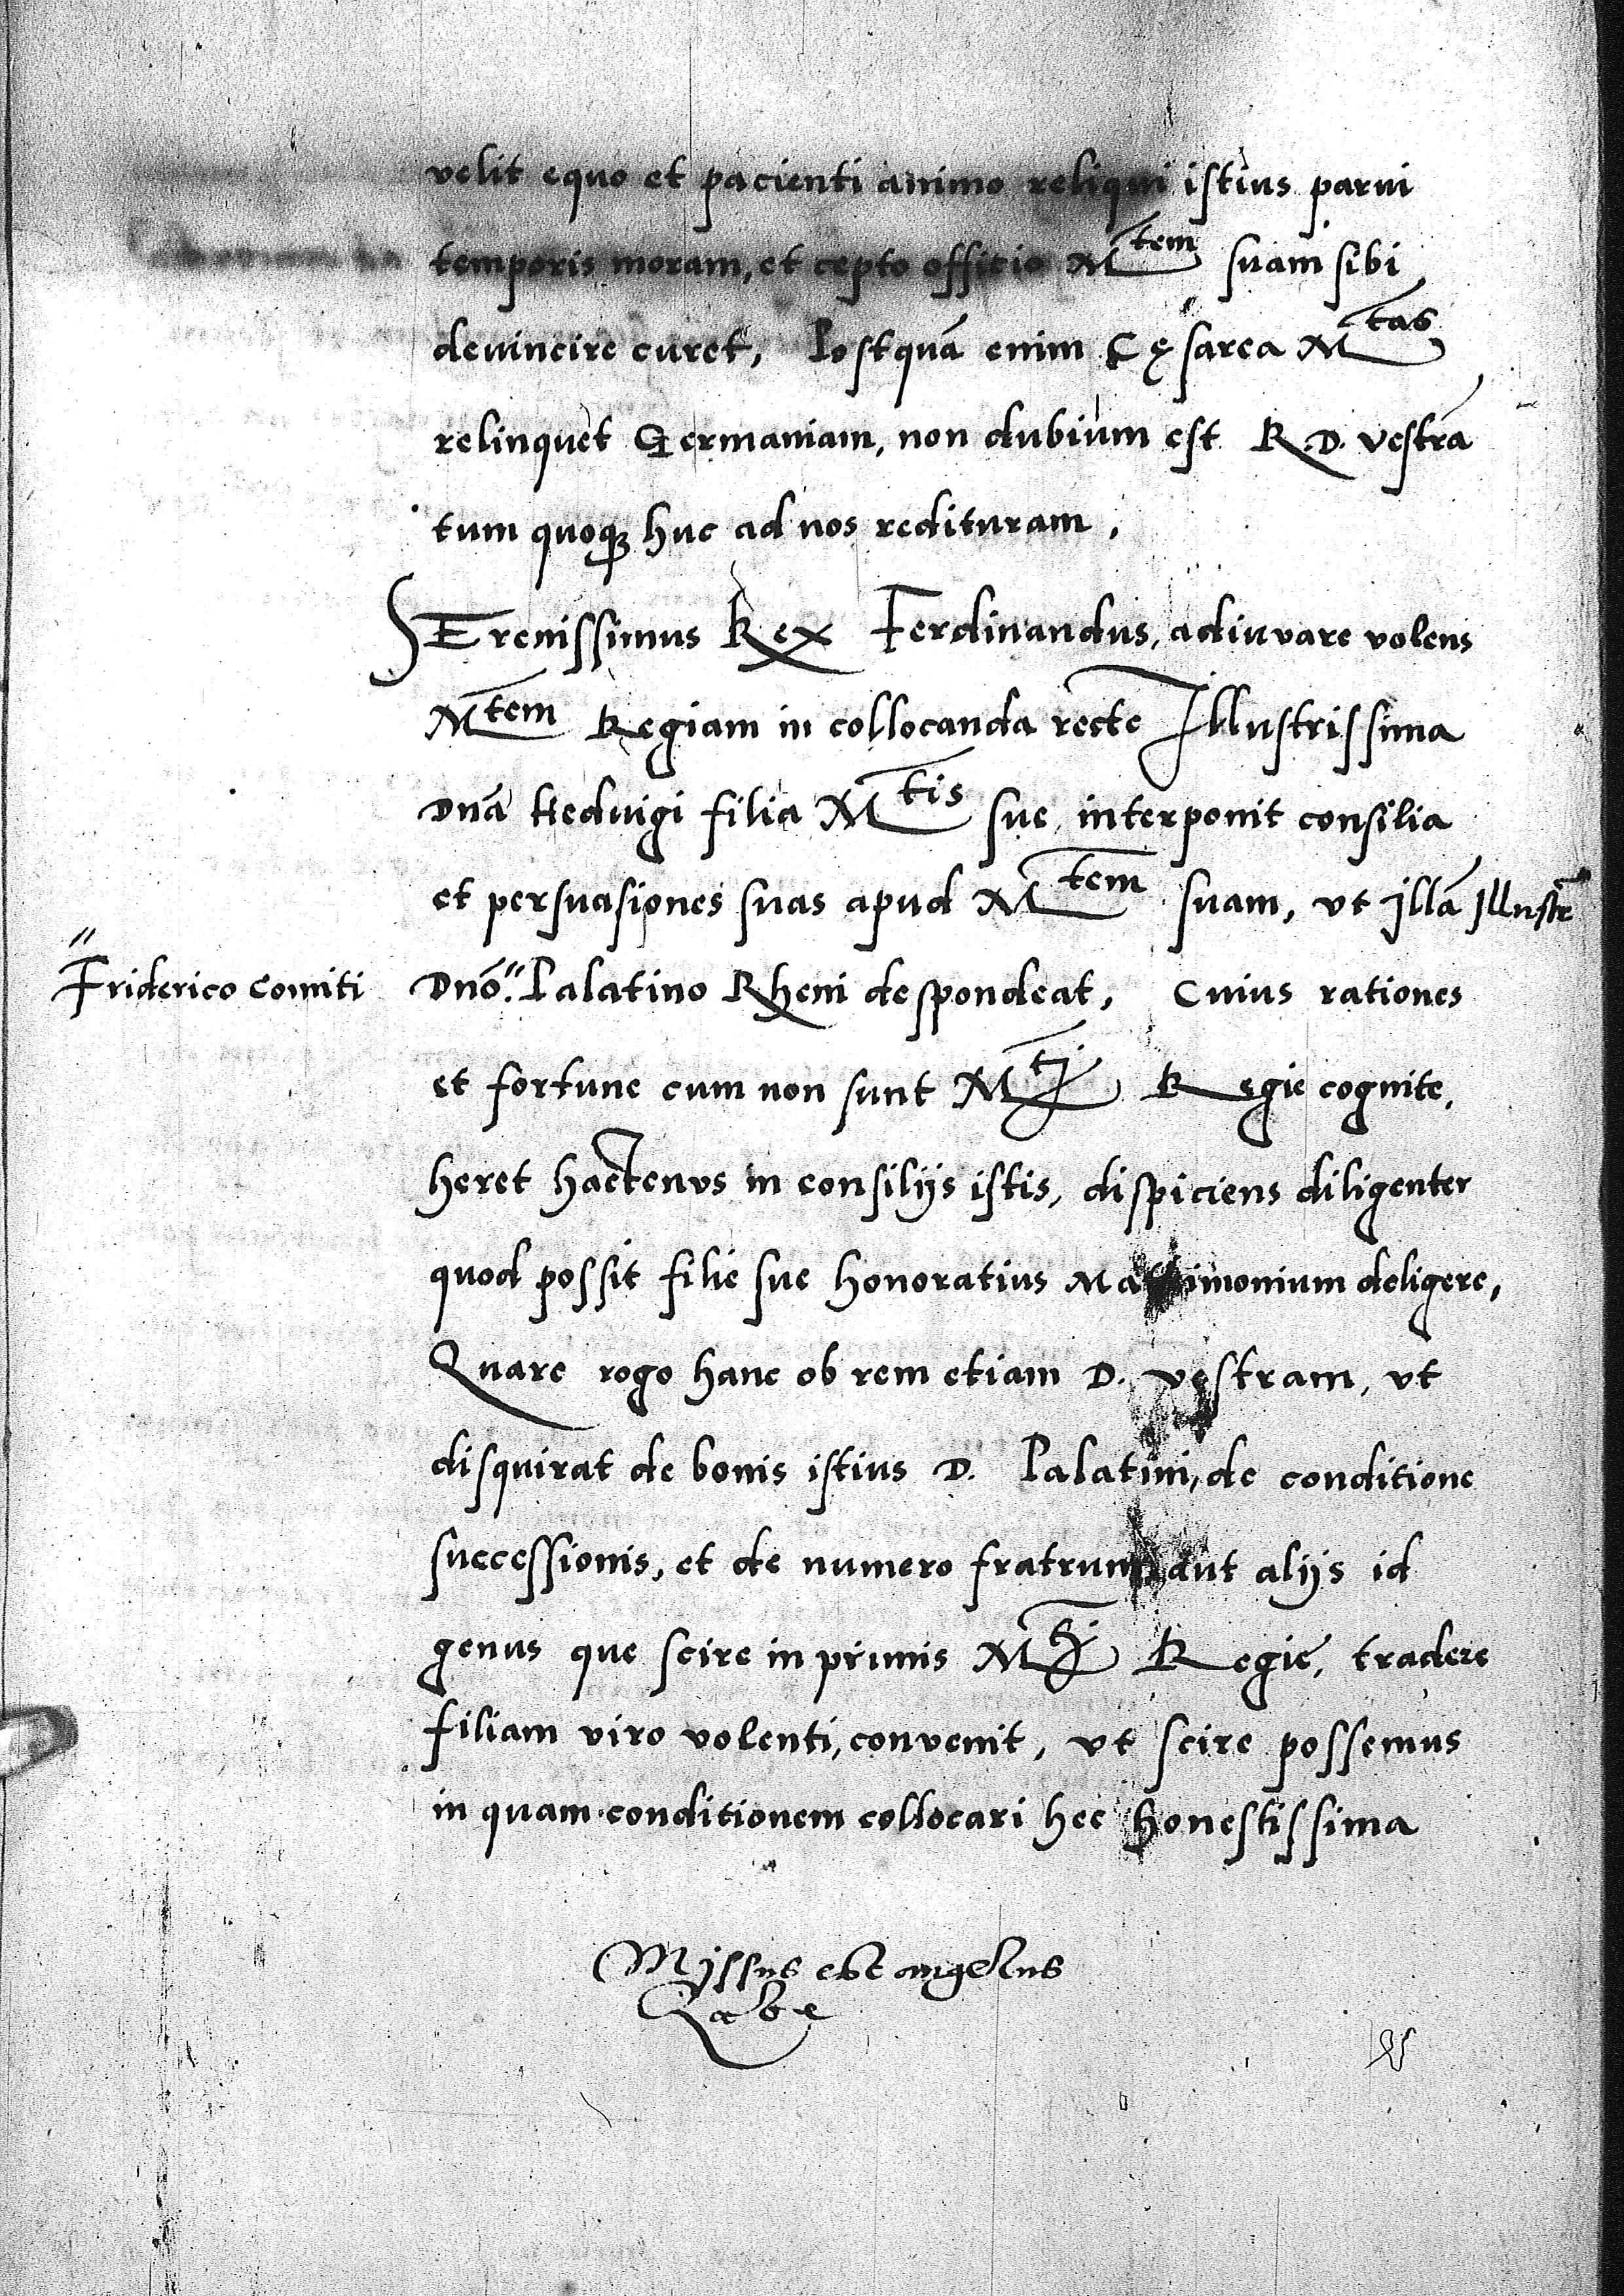 velit equo et pacienti animo reliqui istius parui
temporis moram, et cepto officio M^tem suam sibi
deuincire curet, Postquā enim Cęsarea M^tas
relinquet Germaniam, non dubium est R.D. vestrā
tum quoqꝫ huc ad nos redituram,
SErenissimus Rex Ferdinandus, adiuvare volens
M^tem Regiam in collocanda recte Illustrissima
Dnā Heduigi filia M^tis sue, interponit consilia
et persuasiones suas apud M^tem suam, vt illā Illustr̄
Friderico Comiti
Dnō." Palatino Rheni despondeat, Cuius rationes
et fortune cum non sunt M^ti Regie cognite,
heret hactenvs in consilijs istis, dispiciens diligenter
quod possit filie sue honoratius Matrimonium deligere,
Quare rogo hanc ob rem etiam D. vestram, vt
disquirat de bonis istius D. Palatini, de conditione
successionis, et de numero fratrum aut alijs id
genus que scire in primis M^ti Regie, tradere
filiam viro volenti, convenit, vt scire possemus
in quam conditionem collocari hec honestissima
Myssus est angelus